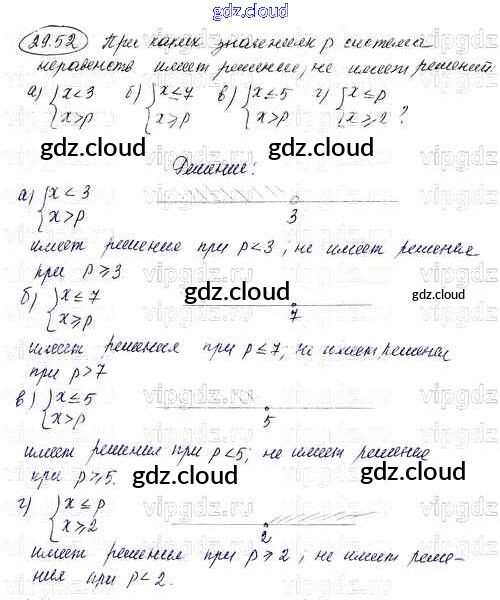 gdz.cloud
29.52 При каких значениях p система
неравенств имеет решение, не имеет решений:
а) { x<3 б) { x≤7 в) { x≤5 г) { x≤p
x>p x≥p x>p x≥2 ?
gdz.cloud gdz.cloud
Решение:
а) { x<3
x>p 3
имеет решение при p<3, не имеет решения
при p≥3
б) { x≤7 gdz.cloud gdz.cloud
x≥p 7
имеет решения при p≤7, не имеет решения
при p>7
в) { x≤5
x>p 5
имеет решения при p<5; не имеет решения
при p≥5. gdz.cloud gdz.cloud
г) { x≤p
x≥2 2
имеет решенье при p≥2, не имеет реше-
ния при p<2.
gdz.cloud